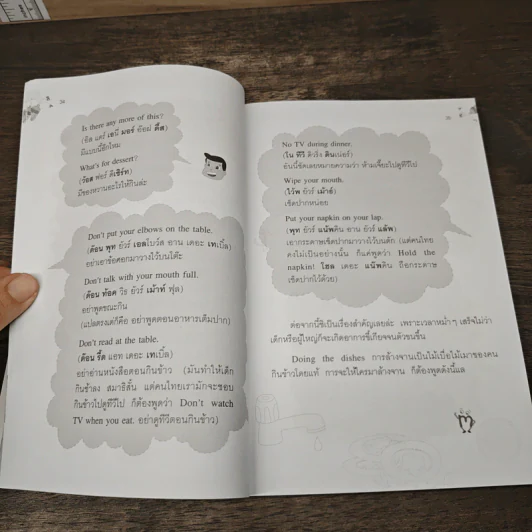 Is there any more of this?
(อิส แดร์ เอนี่ มอร์ อ๊อฟ ดิ๊ส)
มีแบบนี้อีกไหม
What's for dessert?
(ว๊อส ฟอร์ ดีเซิร์ท)
มีของหวานอะไรให้กินล่ะ
Don't put your elbows on the table.
(ด๊อน พุท ยัวร์ เอลโบว์ส ออน เดอะ เทเบิ้ล)
อย่าเอาข้อศอกมาวางไว้บนโต๊ะ
Don't talk with your mouth full.
(ด๊อน ท้อค วิธ ยัวร์ เม้าท์ ฟุล)
อย่าพูดขณะกิน
(แปลตรงแต่ก็คือ อย่าพูดตอนอาหารเต็มปาก)
Don't read at the table.
(ด๊อน รี้ด แอท เดอะ เทเบิ้ล)
อย่าอ่านหนังสือตอนกินข้าว (มันทำให้เด็ก
กินข้าวลง สมาธิสั้น แต่คนไทยเรามักจะชอบ
กินข้าวไปดูทีวีไป ก็ต้องพูดว่า Don't watch
TV when you eat. อย่าดูทีวีตอนกินข้าว)
No TV during dinner.
(โน ทีวี ดิวริ่ง ดินเน่อร์)
อันนี้ชัดเลยหมายความว่า ห้ามเจี๊ยะไปดูทีวีไป
Wipe your mouth.
(ไว้พ ยัวร์ เม้าธ์)
เช็ดปากหน่อย
Put your napkin on your lap.
(พุท ยัวร์ แน้พคิน ออน ยัวร์ แล้พ)
เอากระดาษเช็ดปากมาวางไว้บนตัก (แต่คนไทย
คงไม่เป็นอย่างนั้น ก็แค่พูดว่า Hold the
napkin! โฮล เดอะ แน้พคิน ถือกระดาษ
เช็ดปากไว้ด้วย)
ต่อจากนี้ซิเป็นเรื่องสำคัญเลยล่ะ เพราะเวลาหม่ำๆ เสร็จไม่ว่า
เด็กหรือผู้ใหญ่ก็จะเกิดอาการขี้เกียจจนตัวขนขึ้น
Doing the dishes การล้างจานเป็นไม้เบื่อไม้เมาของคน
กินข้าวโดยแท้ การจะให้ใครมาล้างจาน ก็ต้องพูดดังนี้แล